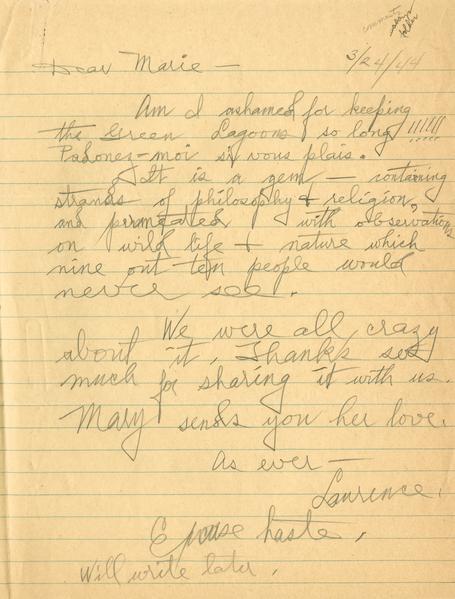 comments
see
folder
3/24/44
Dear Marie —
Am I ashamed for keeping
the Green Lagoons so long !!!!!!
Padonez-moi si vous plais.
It is a gem — containing
strands of philosophy & religion,
and permeated with observations
on wild life & nature which
nine out ten people would
never see.
We were all crazy
about it. Thanks so
much for sharing it with us.
Mary sends you her love.
As ever —
Laurence.
haste.
Will write later.